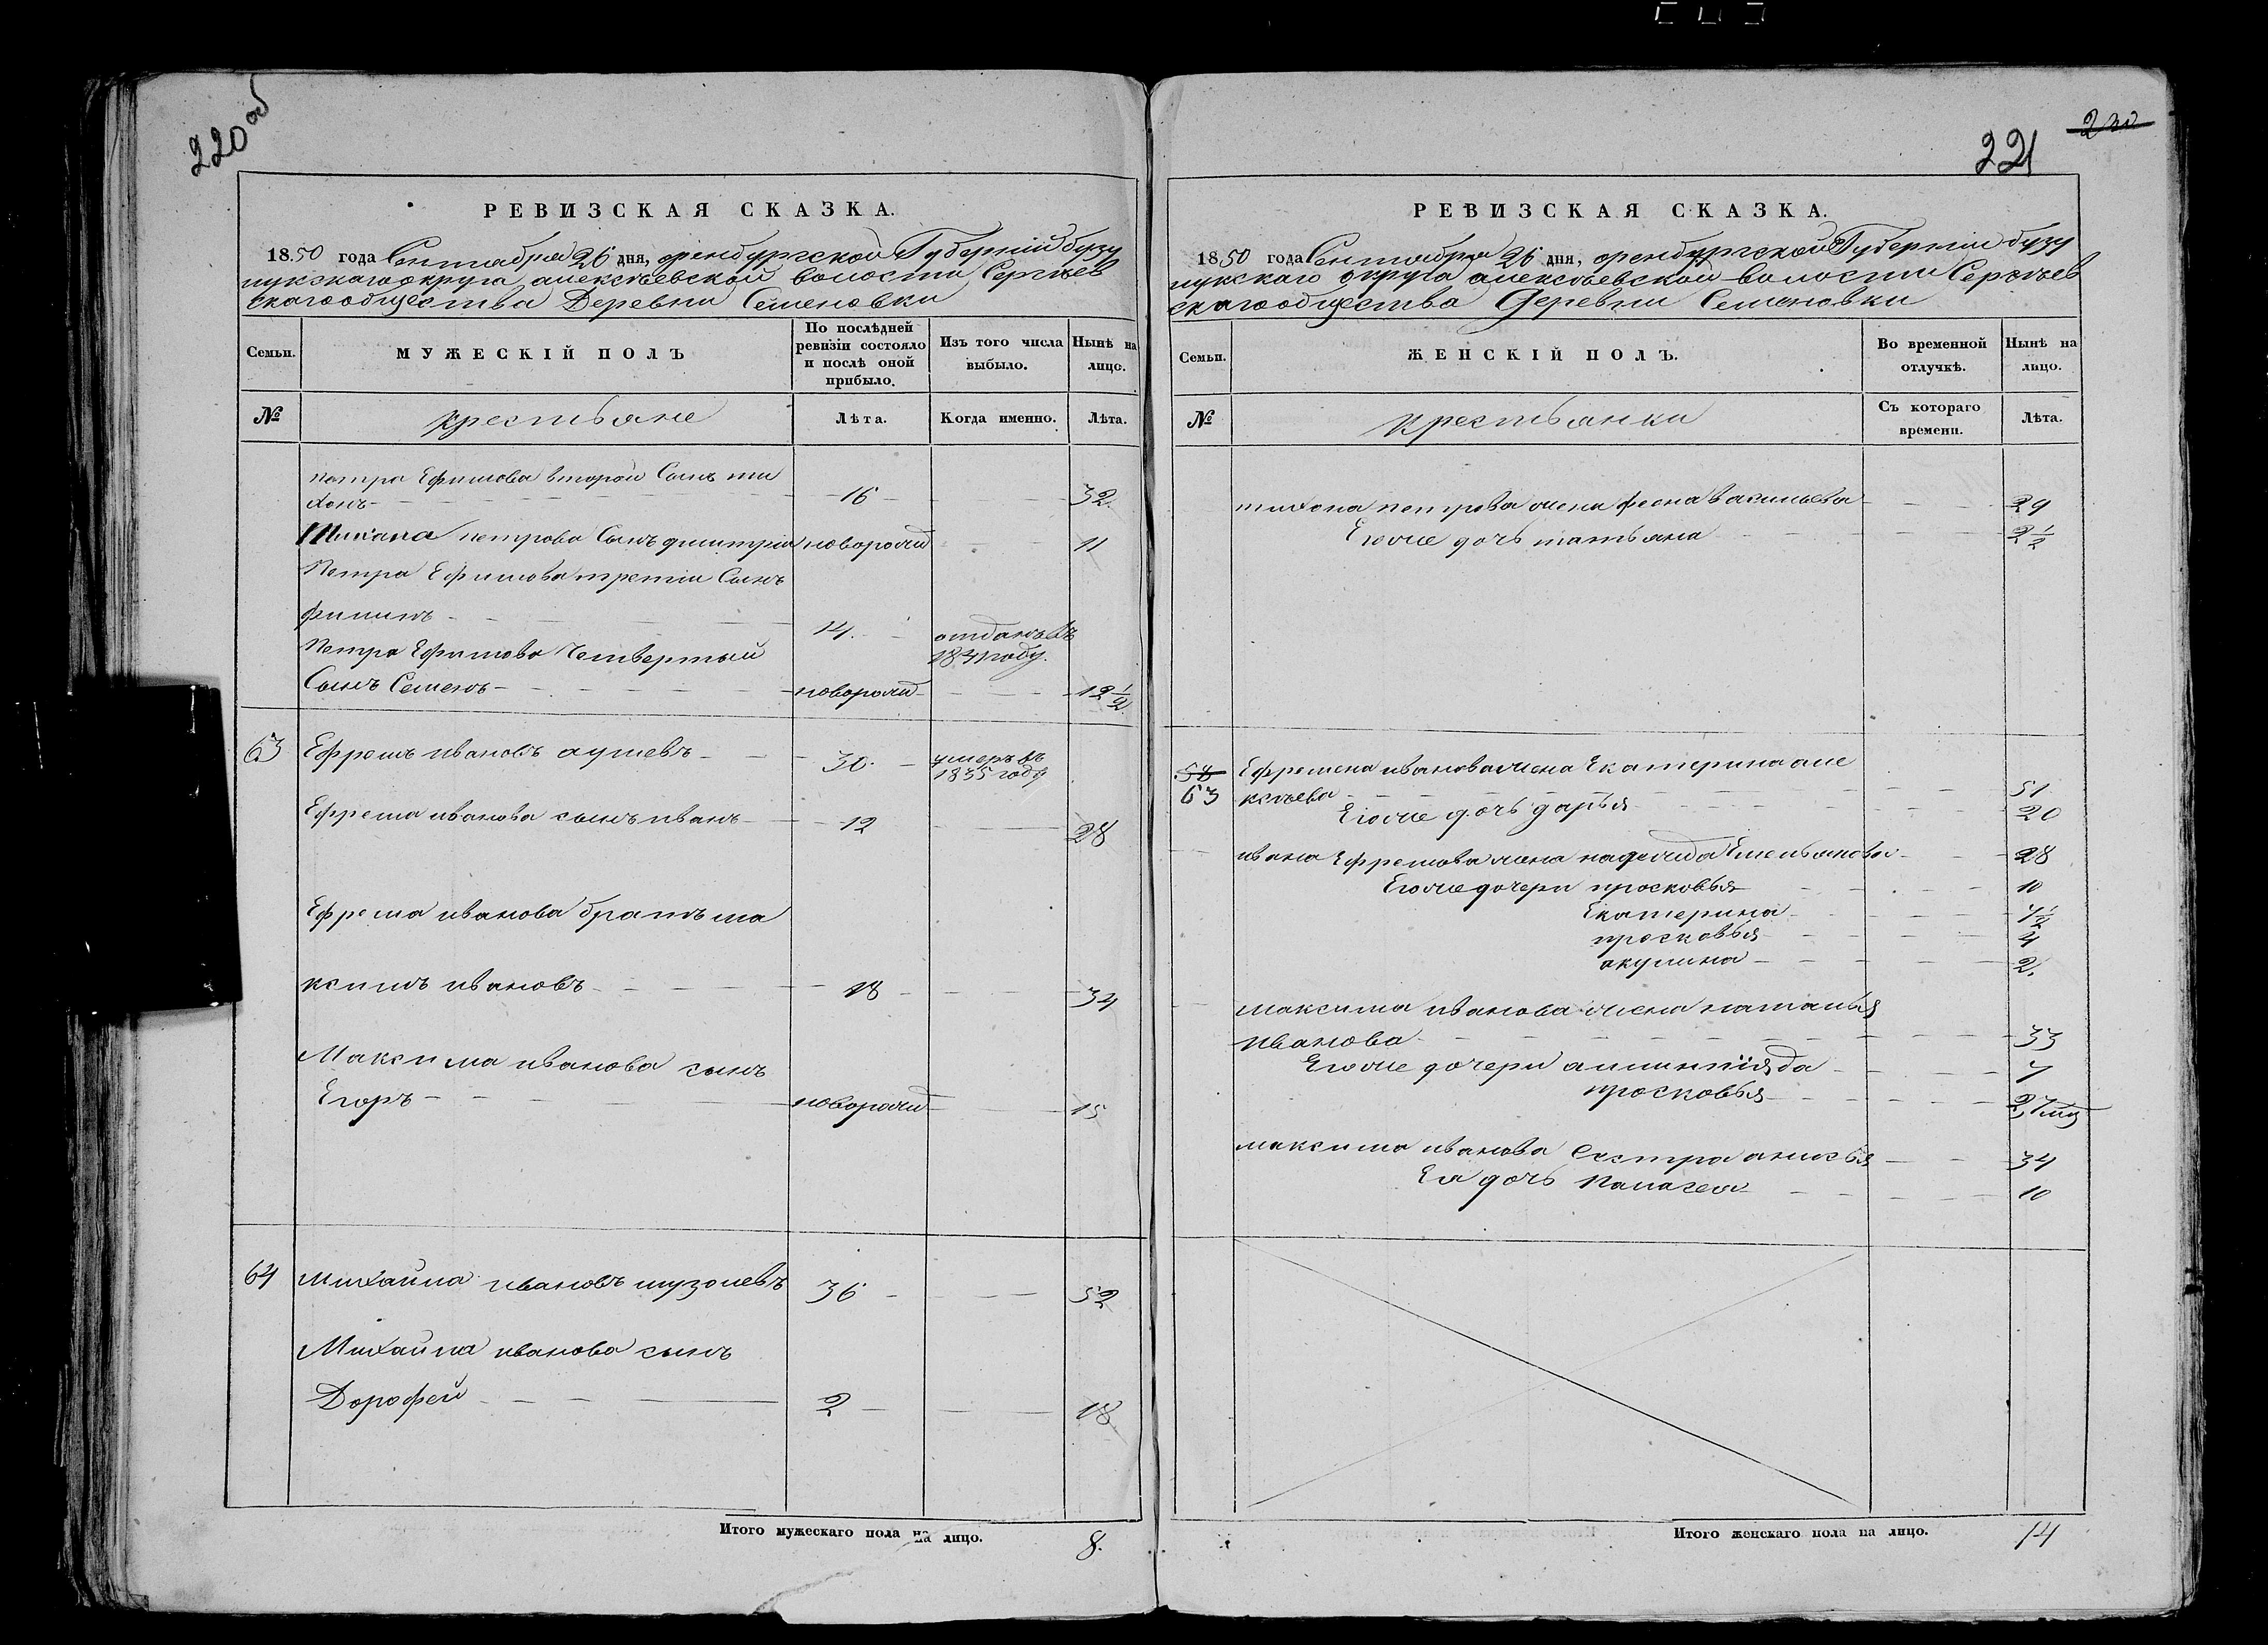 220 об
РЕВИЗСКАЯ СКАЗКА.
1850 года Сентября 26 дня, оренбургской Губернии бузу
лукскаго округа алексѣевской волости Сергиев
скаго общества Деревни Семеновки
Семьи.
МУЖЕСКІЙ ПОЛЪ
По послѣдней
ревизіи состояло
и послѣ оной
прибыло.
Изъ того числа
выбыло.
Нынѣ на
лицо.
№
крестьяне
Лѣта.
Когда именно.
Лѣта.
петра Ефимова второй Сынъ ти
хонъ 16 32
Тихана петрова Сынъ дмитрий новорожд 11
Петра Ефимова третии Сынъ
филипъ 14. отданъ въ
Петра Ефимова Четвертый 1841 году.
Сынъ Семенъ новорожд 12 1/2
63 Ефремъ ивановъ 30. умеръ въ
1835 году
Ефрема иванова сынъ иванъ 12 28
Ефрема иванова братъ ма
ксимъ ивановъ 18 34
Максима иванова сынъ
Егоръ новорожд 15
64 михайла ивановъ 36 52
Михайла иванова сынъ
Дорофей 2 18
Итого мужескаго пола на лицо. 8.
230
221
РЕВИЗСКАЯ СКАЗКА.
1850 года Сентября 26 дня, оренбургской Губернии бузу
лукскаго округа алексѣевской волости Сергѣев
скаго общества Деревни Семеновки
Семьи.
ЖЕНСКІЙ ПОЛЪ.
Во временной
отлучкѣ.
Нынѣ на
лицо.
№
крестьянки
Съ котораго
времени.
Лѣта.
тихона петрова жена фесна васильева 29
Егоже дочь татьяна 2 1/2
58
63
Ефремена иванова жена Екатерина але
ксѣева 51
Егоже дочь дарья 20
ивана Ефремова жена надежда Емельянова 28
Егоже дочери просковья 10
Екатерина 7 1/2
просковья 4
акулина 2.
максима иванова жена наталья
иванова 33
Егоже дочери 7
просковья
максима иванова сестра анисья 34
Ея дочь палагея 10
Итого женскаго пола на лицо. 14